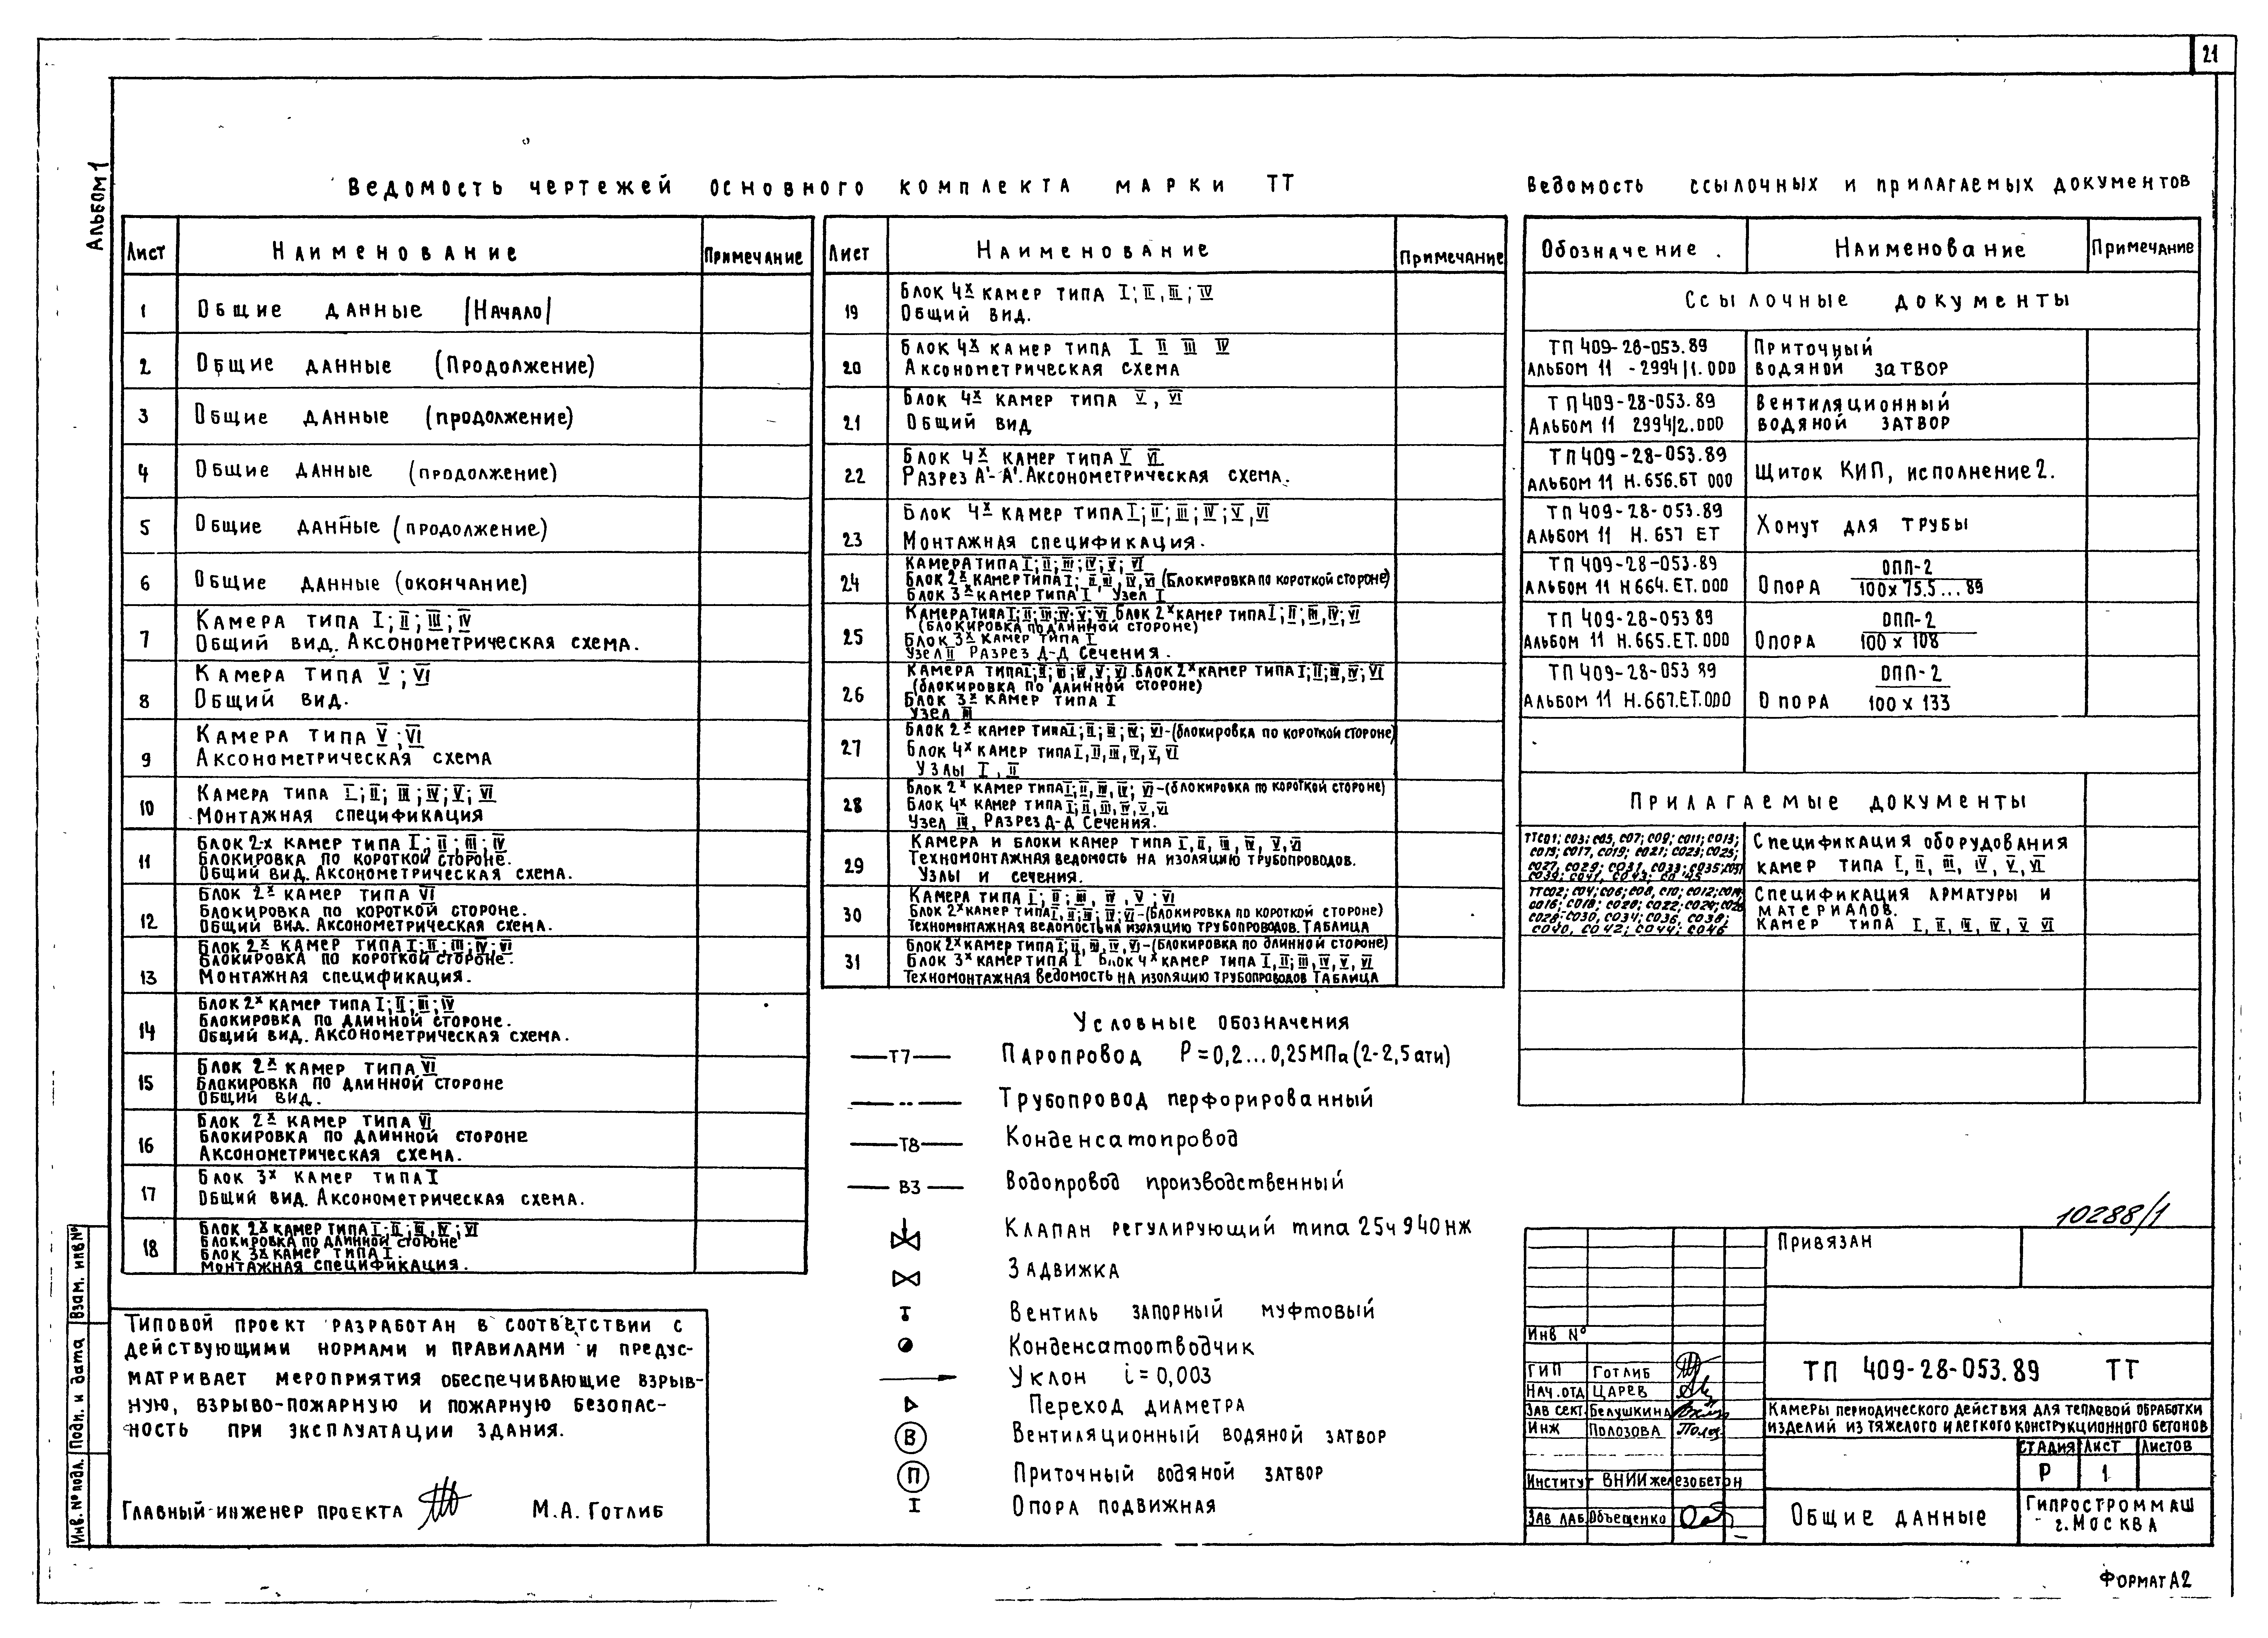 21
Альбом 1
Ведомость чертежей основного комплекта марки ТТ
Лист Наименование Примечание
1 Общие данные |Начало|
2 Общие данные (Продолжение)
3 Общие данные (продолжение)
4 Общие данные (продолжение)
5 Общие данные (продолжение)
6 Общие данные (окончание)
7 Камера типа I; II; III; IV
Общий вид. Аксонометрическая схема.
8 Камера типа V; VI
Общий вид.
9 Камера типа V; VI
Аксонометрическая схема
10 Камера типа I; II; III; IV; V; VI
Монтажная спецификация
11 Блок 2-х камер типа I; II; III; IV
Блокировка по короткой стороне.
Общий вид. Аксонометрическая схема.
12 Блок 2х камер типа VI
Блокировка по короткой стороне.
Общий вид. Аксонометрическая схема.
13 Блок 2х камер типа I; II; III; IV; VI
Блокировка по короткой стороне.
Монтажная спецификация.
14 Блок 2х камер типа I; II; III; IV
Блокировка по длинной стороне.
Общий вид. Аксонометрическая схема.
15 Блок 2х камер типа VI
Блокировка по длинной стороне
Общий вид.
16 Блок 2х камер типа VI
Блокировка по длинной стороне
Аксонометрическая схема.
17 Блок 3х камер типа I
Общий вид. Аксонометрическая схема.
18 Блок 2х камер типа I; II; III, IV; VI
Блокировка по длинной стороне
Блок 3х камер типа I.
Монтажная спецификация.
Лист Наименование Примечание
19 Блок 4х камер типа I; II, III; IV
Общий вид.
20 Блок 4х камер типа I II III IV
Аксонометрическая схема
21 Блок 4х камер типа V, VI
Общий вид
22 Блок 4х камер типа V VI
Разрез А'-А'. Аксонометрическая схема.
23 Блок 4х камер типа I; II; III; IV; V, VI
Монтажная спецификация.
24 Камера типа I; II; III; IV; V; VI
Блок 2х камер типа I; II, III, IV, VI (Блокировка по короткой стороне)
Блок 3х камер типа I Узел I
25 Камера типа I; II; III; IV; V; VI. Блок 2х камер типа I; II; III, IV; VI
(блокировка по длинной стороне)
Блок 3х камер типа I
Узел II Разрез Д-Д Сечения.
26 Камера типа I; II; III; IV, V; VI. Блок 2х камер типа I; II; III, IV; VI
(блокировка по длинной стороне)
Блок 3х камер типа I
Узел III
27 Блок 2х камер типа I; II; III; IV; VI-(блокировка по короткой стороне)
Блок 4х камер типа I, II, III, IV, V, VI
Узлы I, II
28 Блок 2х камер типа I; II, III, IV; VI-(блокировка по короткой стороне)
Блок 4х камер типа I; II, III, IV, V, VI
Узел III, Разрез Д-Д Сечения.
29 Камера и блоки камер типа I, II, III, IV, V, VI
Техномонтажная ведомость на изоляцию трубопроводов.
Узлы и сечения.
30 Камера типа I; II; III, IV, V; VI
Блок 2х камер типа I, II; III; IV; VI-(Блокировка по короткой стороне)
Техномонтажная ведомость на изоляцию трубопроводов. Таблица
31 Блок 2х камер типа I; II, III, IV, VI-(Блокировка по длинной стороне)
Блок 3х камер типа I Блок 4х камер типа I, II; III, IV, V, VI
Техномонтажная ведомость на изоляцию трубопроводов Таблица
Ведомость ссылочных и прилагаемых документов
Обозначение. Наименование Примечание
Ссылочные документы
ТП 409-28-053.89 Приточный
Альбом 11 -2994|1.000 водяной затвор
ТП 409-28-053.89 Вентиляционный
Альбом 11 2994|2.000 водяной затвор
ТП 409-28-053.89
Альбом 11 Н.656.БТ 000 Щиток КИП, исполнение 2.
ТП 409-28-053.89
Альбом 11 Н. 657 ЕТ Хомут для трубы
ТП 409-28-053.89
Альбом 11 Н 664. ЕТ. 000 Опора ОПП-2
100 х 75.5...89
ТП 409-28-053 89
Альбом 11 Н.665.ЕТ.000 Опора ОПП-2
100 х 108
ТП 409-28-053 89
Альбом 11 Н.667.ЕТ.000 Опора ОПП-2
100 х 133
Прилагаемые документы
ТТСО1; СО3; СО5, СО7; СО9; СО11; СО13;
СО15; СО17, СО19; СО21; СО23; СО25;
СО27, СО29; СО31, СО33; СО35; СО37
СО39; СО41, СО43; СО 45
Спецификация оборудования
камер типа I, II, III, IV, V, VI
ТТСО2; СО4; СО6; СО8, С10; СО12; СО14;
СО16; СО18; СО20; СО22; СО24; СО26
СО28; СО30, СО34; СО36, СО38;
СО40, СО42; СО44; СО46
Спецификация арматуры и
материалов.
Камер типа I, II, III, IV, V VI
Условные обозначения
Т7 Паропровод Р = 0,2...0,25МПа (2-2,5 ати)
Трубопровод перфорированный
Т8 Конденсатопровод
В3 Водопровод производственный
Клапан регулирующий типа 25ч 940 нж
Задвижка
Вентиль запорный муфтовый
Конденсатоотводчик
Уклон i = 0,003
Переход диаметра
В Вентиляционный водяной затвор
П Приточный водяной затвор
Опора подвижная
Типовой проект разработан в соответствии с
действующими нормами и правилами и предус-
матривает мероприятия обеспечивающие взрыв-
ную, взрыво-пожарную и пожарную безопас-
ность при эксплуатации здания.
Главный инженер проекта М.А. Готлиб
Взам. инв №
Подп. и дата
Инв. № подл.
10288/1
Привязан
Инв №
ГИП Готлиб
Нач. отд Царев
Зав сект. Белушкина
Инж Полозова
Институт ВНИИжелезобетон
Зав лаб. Объещенко
ТП 409-28-053.89 ТТ
Камеры периодического действия для тепловой обработки
изделий из тяжелого и легкого конструкционного бетонов
Стадия Лист Листов
Р 1
Общие данные
Гипростроммаш
г. Москва
Формат А2